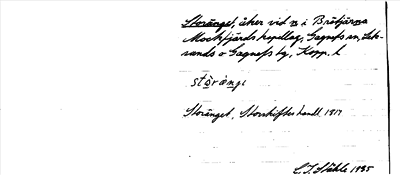 Storänget, åker vid n i Brötjärna
Mockfjärds kapellag, Gagnefs sn, Lek-
sands o Gagnefs tg, Kopp. l
störäŋe
Storänget, Storskifteshandl. 1817
C.I. Ståhle 1935